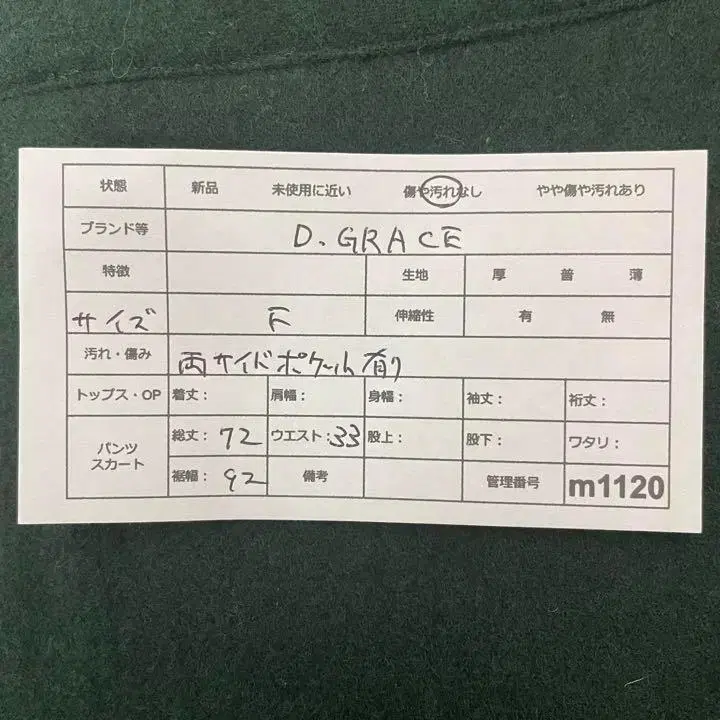 状態 新品 未使用に近い 傷や汚れなし やや傷や汚れあり
ブランド等 D. GRACE
特徴 生地 厚 普 薄
サイズ F 伸縮性 有 無
汚れ・傷み 両サイドポケット有り
トップス・OP 着丈: 肩幅: 身幅: 袖丈: 裄丈:
パンツ スカート 総丈: 72 ウエスト: 33 股上: 股下: ワタリ:
裾幅: 92 備考 管理番号 m1120